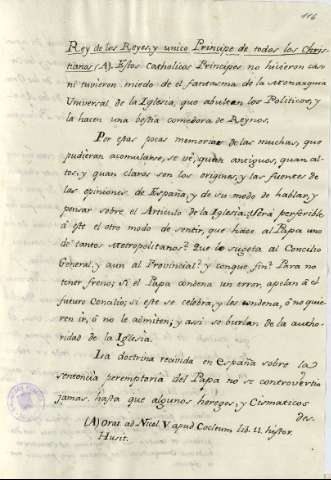 116
Rey de los Reyes, y unico Principe de todos los Chris-
tianos (A). Estos Catholicos Principes no hicieron caso
ni tuvieron miedo de él fantasma de la Monarquia
Universal de la Iglesia, que abultan los Politicos, y
la hacen una bestia comedora de Reynos.
Por estas pocas memorias de las muchas, que
pudieran acomularse, se vé, quan antiguos, quan al-
tos, y quan claros son los origines, y las fuentes de
las opiniones de España, y de su modo de hablar, y
pensar sobre el Articulo de la Iglesia. ¿Será preferible
á este el otro modo de sentir, que hace al Papa uno
de tantos Metropolitanos? Que le sugeta al Concilio
General, y aun al Provincial? y conque fin? Para no
tener freno; si el Papa condena un error, apelan á el
futuro Concilio; si este se celebra, y los condena, ó no quie-
ren ir, ó no le admiten; y asi se burlan de la autho-
ridad de la Iglesia.
La doctrina recivida en España sobre la
sentencia peremptoria del Papa no se controvertio
jamas, hasta que algunos hereges, y Cismaticos
des-
(A) Orat. ad Nicol. V. apud Cocleum lib. 11. histor.
Husit.